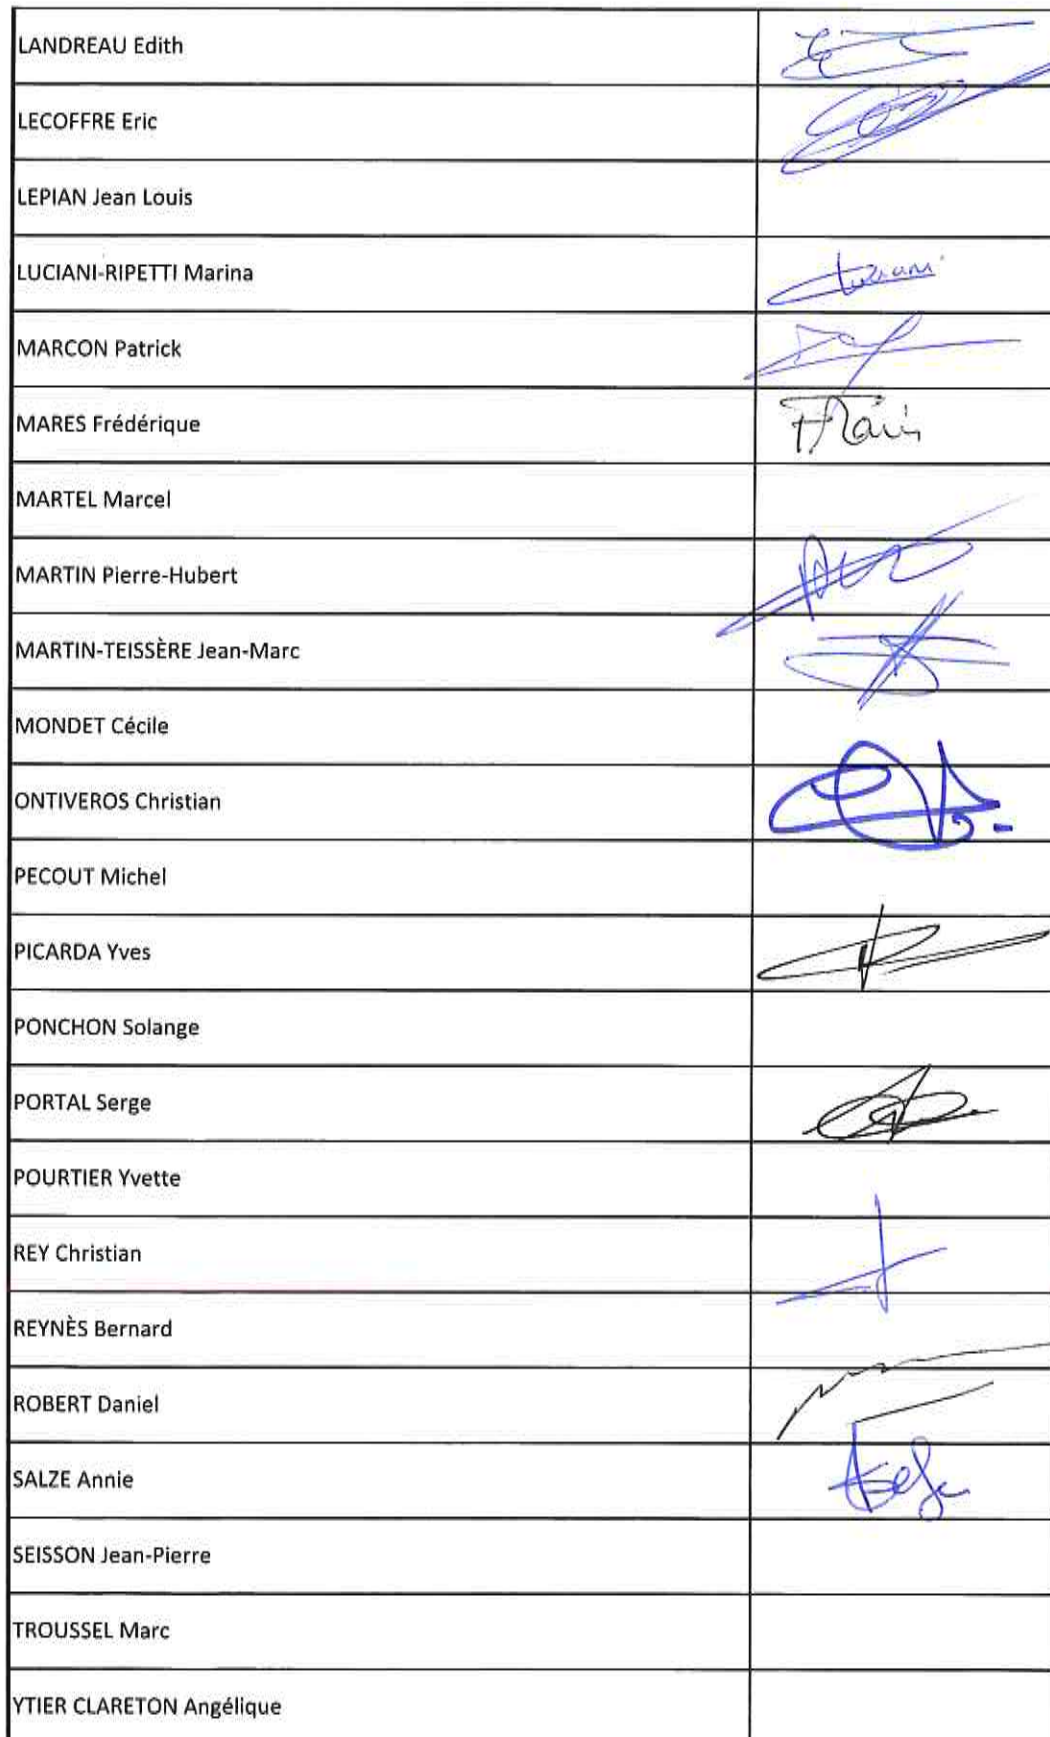 LANDREAU Edith
LECOFFRE Eric
LEPIAN Jean Louis
LUCIANI-RIPETTI Marina
Luciani
MARCON Patrick
MARES Frédérique
MARTEL Marcel
MARTIN Pierre-Hubert
MARTIN-TEISSÈRE Jean-Marc
MONDET Cécile
ONTIVEROS Christian
PECOUT Michel
PICARDA Yves
PONCHON Solange
PORTAL Serge
POURTIER Yvette
REY Christian
REYNÈS Bernard
ROBERT Daniel
SALZE Annie
SEISSON Jean-Pierre
TROUSSEL Marc
YTIER CLARETON Angélique